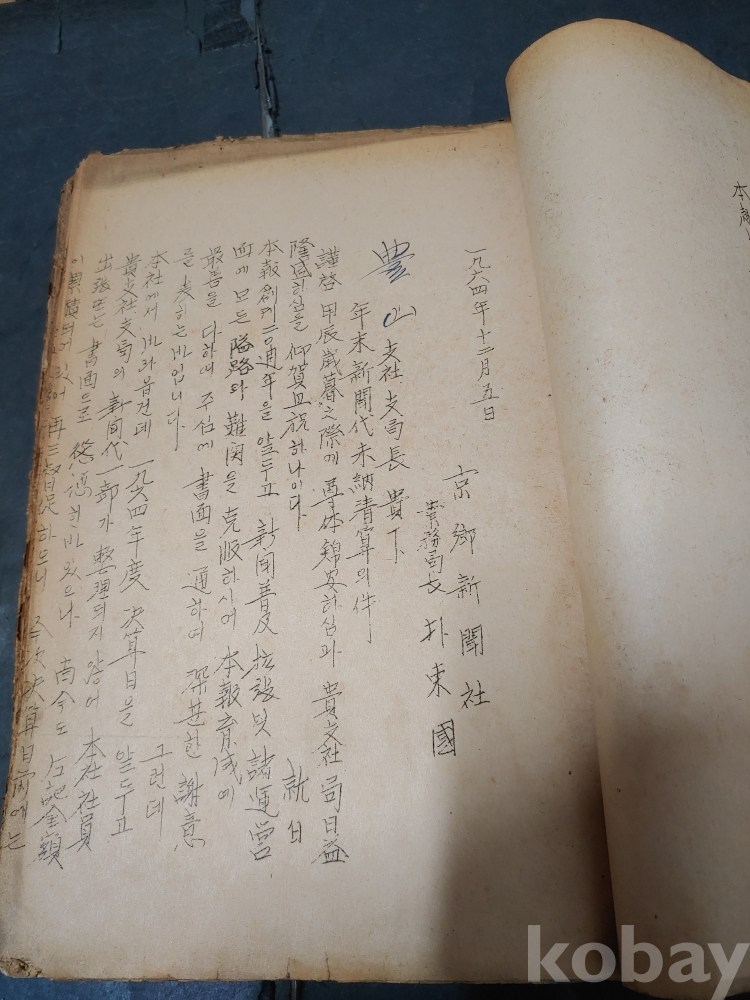 一九六四年十二月五日
京鄕新聞社
業務局長 朴東國
豊山支社支局長 貴下
年末新聞代未納淸算의件
謹啓 甲辰歲暮之際에 尊体錦安하심과 貴支社局日益
隆盛하심을 仰賀且祝하나이다 就白
本報創刊 周年을 앞두고 新聞普及 拡張및 諸運營
面에 모든 隘路와 難関을 克服하시어 本報育成에
最善을 다하여 주심에 書面을 通하여 深甚한 謝意
를 表하는바입니다 그런데
本社에서 바라옵건데 一九六四年度 決算日을 앞두고
貴支社支局의 新聞代 一部가 整理되지않어 本社社員
出張또는 書面으로 한바있으나 尙今도 左記金額
이 있어 再三督促하오니 決算日 에는
本
kobay